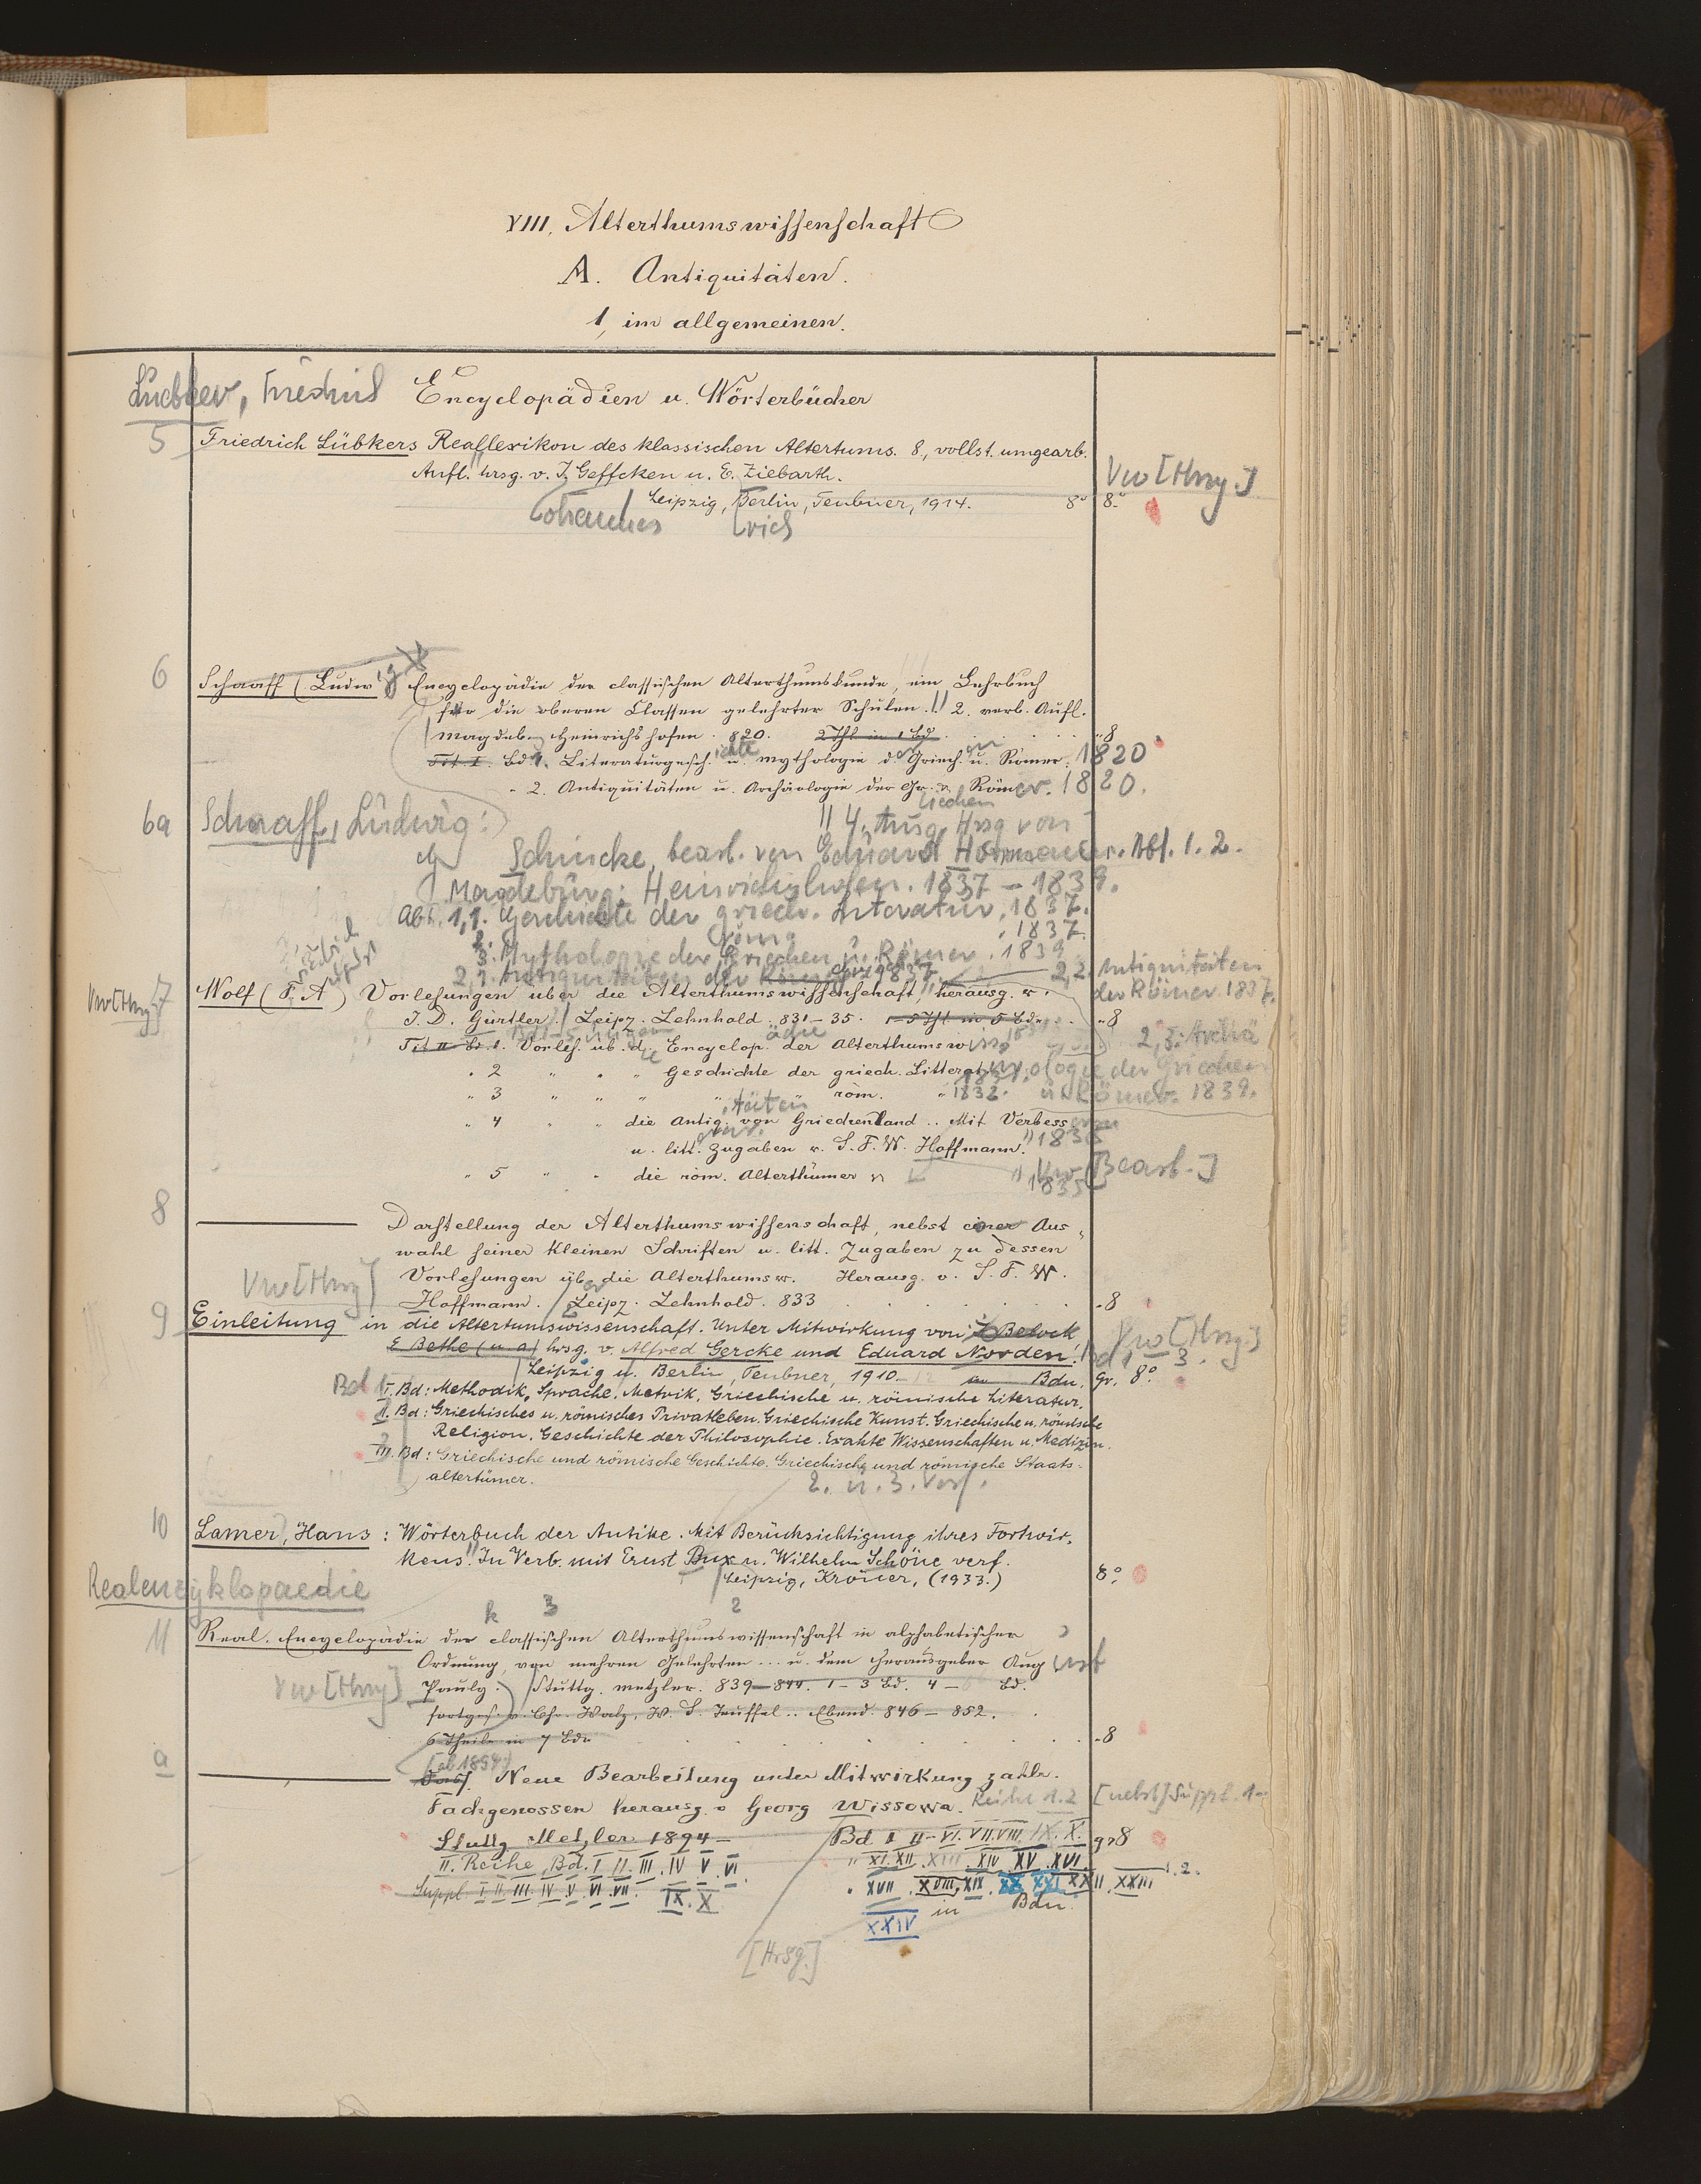 VIII. Alterthumswissenschaft
A. Antiquitäten.
1, im allgemeinen.
Luebker, Friedrich Encyclopädien u. Wörterbücher
5 Friedrich Lübkers Reallexikon des klassischen Altertums. 8., vollst. umgearb.
Aufl. hrsg. v. J. Geffcken u. E. Ziebarth.
Vw [Hrsg.]
Leipzig, Berlin, Teubner, 1914. 8° 8.°
[ohannes [rich
6 Schaaff (Ludwig) Encyclopädie der classischen Alterthumskunde, ein Lehrbuch
für die oberen Classen gelehrter Schulen. 2. verb. Aufl.
Magdeb. Heinrichshofen. 820. 2 Thl in 1 Bd. 8
Tit. I. Bd. 1. Literaturgeschichte u. Mythologie der Griech. u. Römer. 1820
" 2. Antiquitäten u. Archäologie der Griechen u. Römer. 1820.
6a Schaaff, Ludwig: || 4. Ausg. Hrsg von
Schincke, bearb. von Eduard Horrmann. Abt. 1. 2.
Magdeburg: Heinrichshofen. 1837 - 1839.
Abt. 1,1. Geschichte der griech. Literatur, 1837.
2. röm. , 1837.
3. Mythologie der Griechen u. Römer. 1839
2,1. Antiquitäten der Griechen 1837. 2,2. Antiquitäten
der Römer. 1837.
Vw [Hrsg] 7 Wolf (F. A) Vorlesungen über die Alterthumswissenschaft, herausg. v.
J. D. Gürtler. Leipz. Lehnhold. 831-35. 1-5 Thl in 5 Bdn. 8
2,3. Archä
Tit II Bd. 1. Vorles. üb. die Encyclopädie der Alterthumswiss.
" 2 " " " Geschichte der griech. Litteratur. ologie der Griechen
" 3 " " " " röm. " 1832. u. Römer. 1839.
" 4 " " die Antiquitäten von Griechenland .. Mit Verbess
u. litt. Zugaben v. S. F. W. Hoffmann. 1835
" 5 " " die röm. Alterthümer 1835 Vw [Bearb.]
8 ——— Darstellung der Alterthumswissenschaft, nebst einer Aus-
wahl seiner kleinen Schriften u. litt. Zugaben zu dessen
Vw [Hrsg] Vorlesungen über die Alterthumsw. Herausg. v. S. F. W.
Hoffmann. Leipz. Lehnhold. 833 8
9 Einleitung in die Altertumswissenschaft. Unter Mitwirkung von J. Beloch
E. Bethe (u. a) hrsg. v. Alfred Gercke und Eduard Norden. Vw [Hrsg.]
Bd 1 3.
Leipzig u. Berlin, Teubner, 1910-12 in Bdn. Gr. 8°.
Bd I. Bd: Methodik, Sprache, Metrik. Griechische u. römische Literatur.
II. Bd: Griechisches u. römisches Privatleben. Griechische Kunst. Griechische u. römische
Religion. Geschichte der Philosophie. Exakte Wissenschaften u. Medizin.
III. Bd: Griechische und römische Geschichte. Griechische und römische Staats-
altertümer.
2. u. 3. Verf.
10 Lamer, Hans: Wörterbuch der Antike. Mit Berücksichtigung ihres Fortwir-
kens. In Verb. mit Ernst Bux u. Wilhelm Schöne verf.
Leipzig, Kröner, (1933.) 8°.
Realencyklopaedie
k 3 2
11 Real-Encyclopädie der classischen Alterthumswissenschaft in alphabetischer
Ordnung, von mehren Gelehrten ... u. dem Herausgeber August
Vw [Hrsg] Pauly. Stuttg. Metzler. 839-844. 1-3 Bd. 4-6 Bd.
fortges. v. Chr. Walz, W. S. Teuffel .. Ebend. 846-852.
6 Theile in 7 Bdn 8
a ——— [ab 1894:] Dass. Neue Bearbeitung unter Mitwirkung zahlr.
Fachgenossen herausg. v Georg Wissowa. Reihe 1.2 [nebst] Suppl. 1-
Stuttg Metzler 1894- Bd I II-VI. VII. VIII. IX. X. gr 8
II. Reihe, Bd. I II. III. IV V. VI. " XI. XII. XIII XIV XV. XVI.
Suppl I. II. III. IV. V. VI. VII. IX. X. " XVII. XVIII, XIX. XX XXI XXII. XXIII 1.2.
XXIV in Bdn.
[Hrsg.]